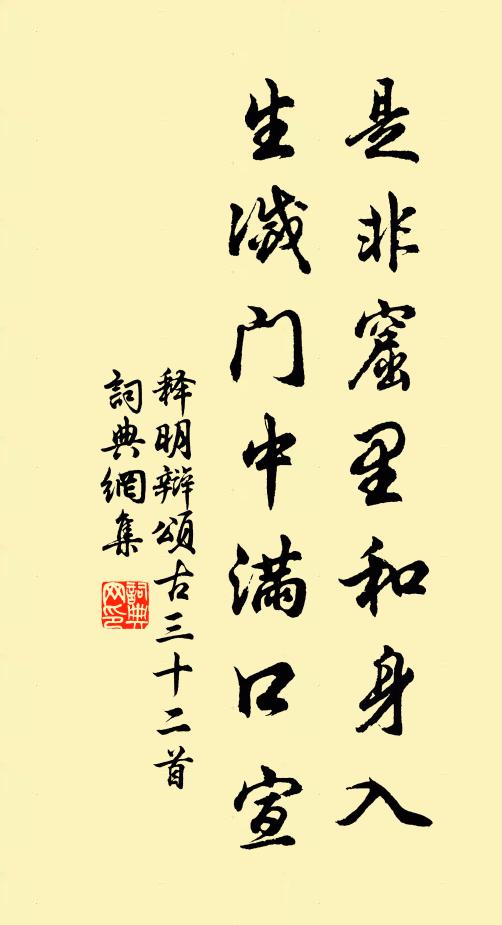 是非窟里和身入
生滅门中满口宣
释明辩颂古三十二首
詞典網集
詞典
网印